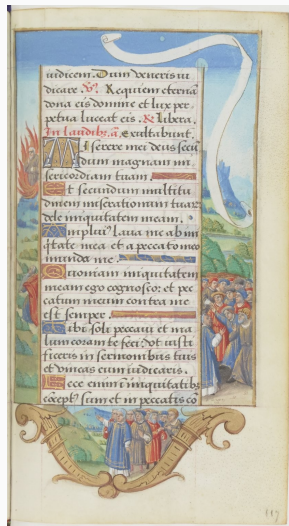 iudicem. Dum veneris iu
dicare. V. Requiem eternā
dona eis domine et lux per
petua luceat eis. R Libera.
In laudibꝰ. ā. Exultabunt.
Miserere mei deus secū
dum magnam mi
sericordiam tuam.
Et secundum multitu
dinem miserationum tuarꝝ
dele iniquitatem meam.
Ampliꝰ laua me ab ini
q̇tate mea et a peccato meo
munda me.
Quoniam iniquitatem
meam ego cognosco: et pec
catum meum contra me
est semper.
Tibi soli peccaui et ma
lum coram te feci. vt iusti
ficeris in sermonibus tuis
et vincas cum iudicaris.
Ecce enim ī iniquitatibꝰ
cōceptꝰ sum et in peccatis cō
117